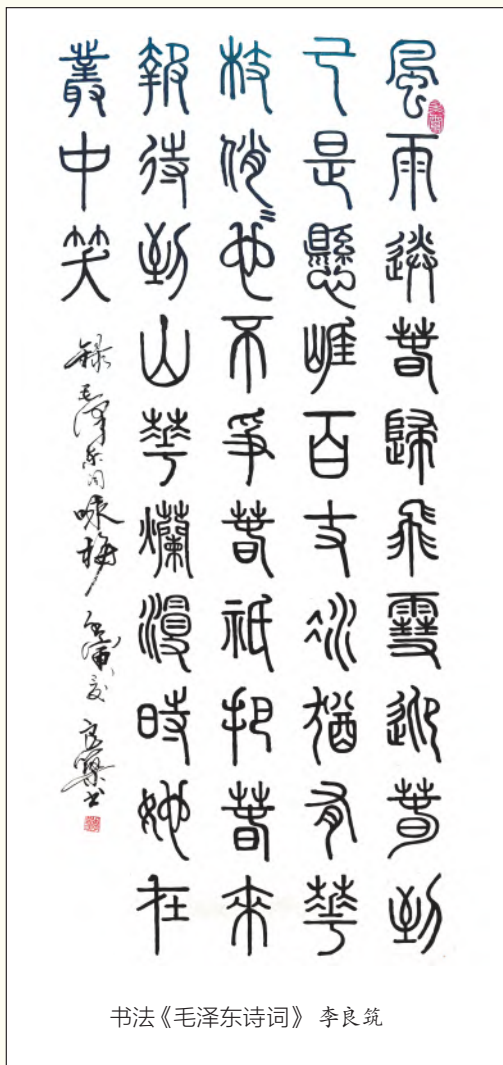 風雨送春歸飛雪迎春到
已是懸崖百丈冰猶有華
枝俏〻也不爭春祇把春來
報待到山華爛漫時她在
叢中笑
錄毛澤东詞咏梅 良築书
书法《毛泽东诗词》 李良筑